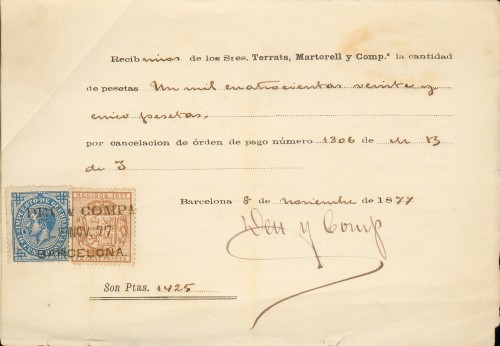 Recibimos de los Sres. Terrats, Martorell y Comp.ª la cantidad
de pesetas Un mil cuatrocientas veinte y
cinco pesetas,
por cancelacion de órden de pago número 1306 de m B
de J
Barcelona 8 de noviembre de 1877
Deu y Comp
DEU Y COMPª
NOV. 77
BARCELONA.
IMPUESTO DE GUERRA
RECIBOS 1877
Son Ptas. 1425